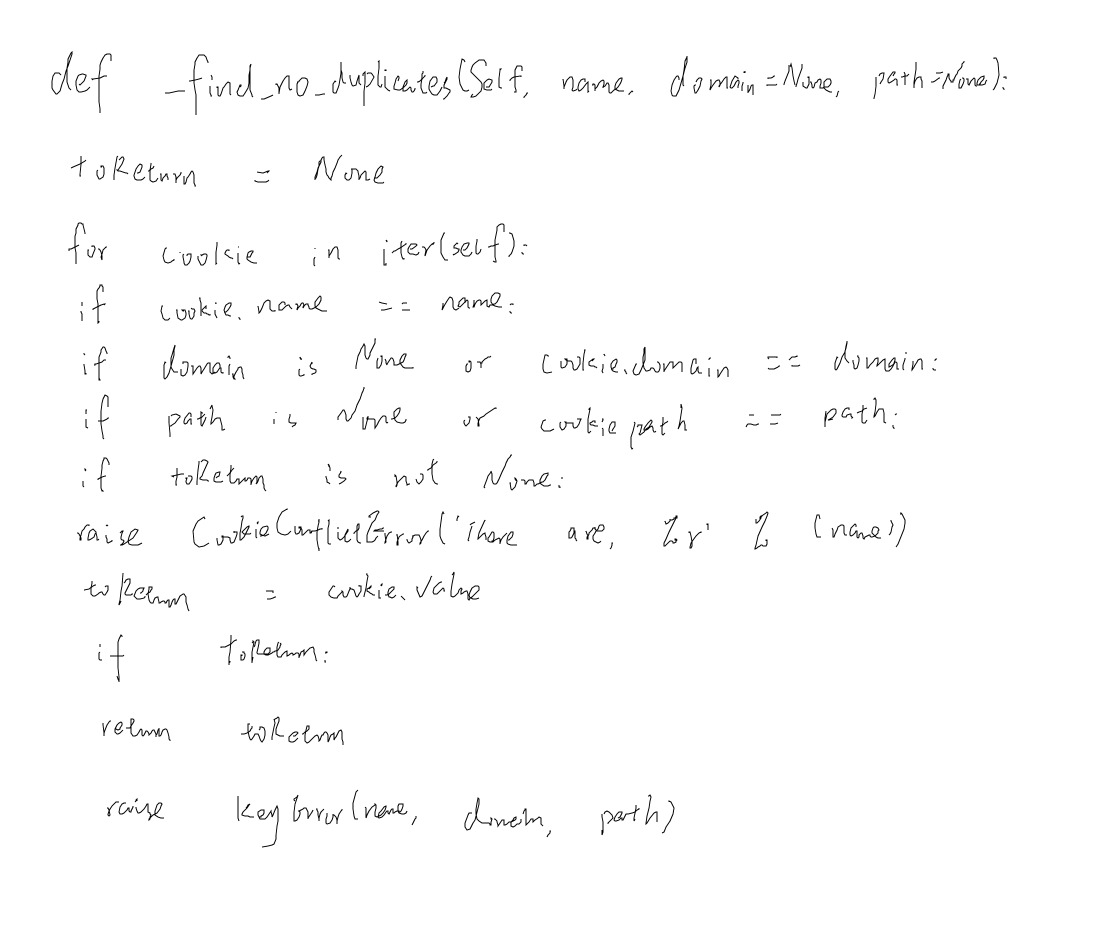 def _find_no_duplicates(Self, name, domain=None, path=None):
toReturn = None
for cookie in iter(self):
if cookie.name == name:
if domain is None or cookie.domain == domain:
if path is None or cookie path == path:
if toReturn is not None:
raise CookieConflictError('There are, %r' % (name))
toReturn = cookie.value
if toReturn:
return toReturn
raise KeyError(name, domain, path)